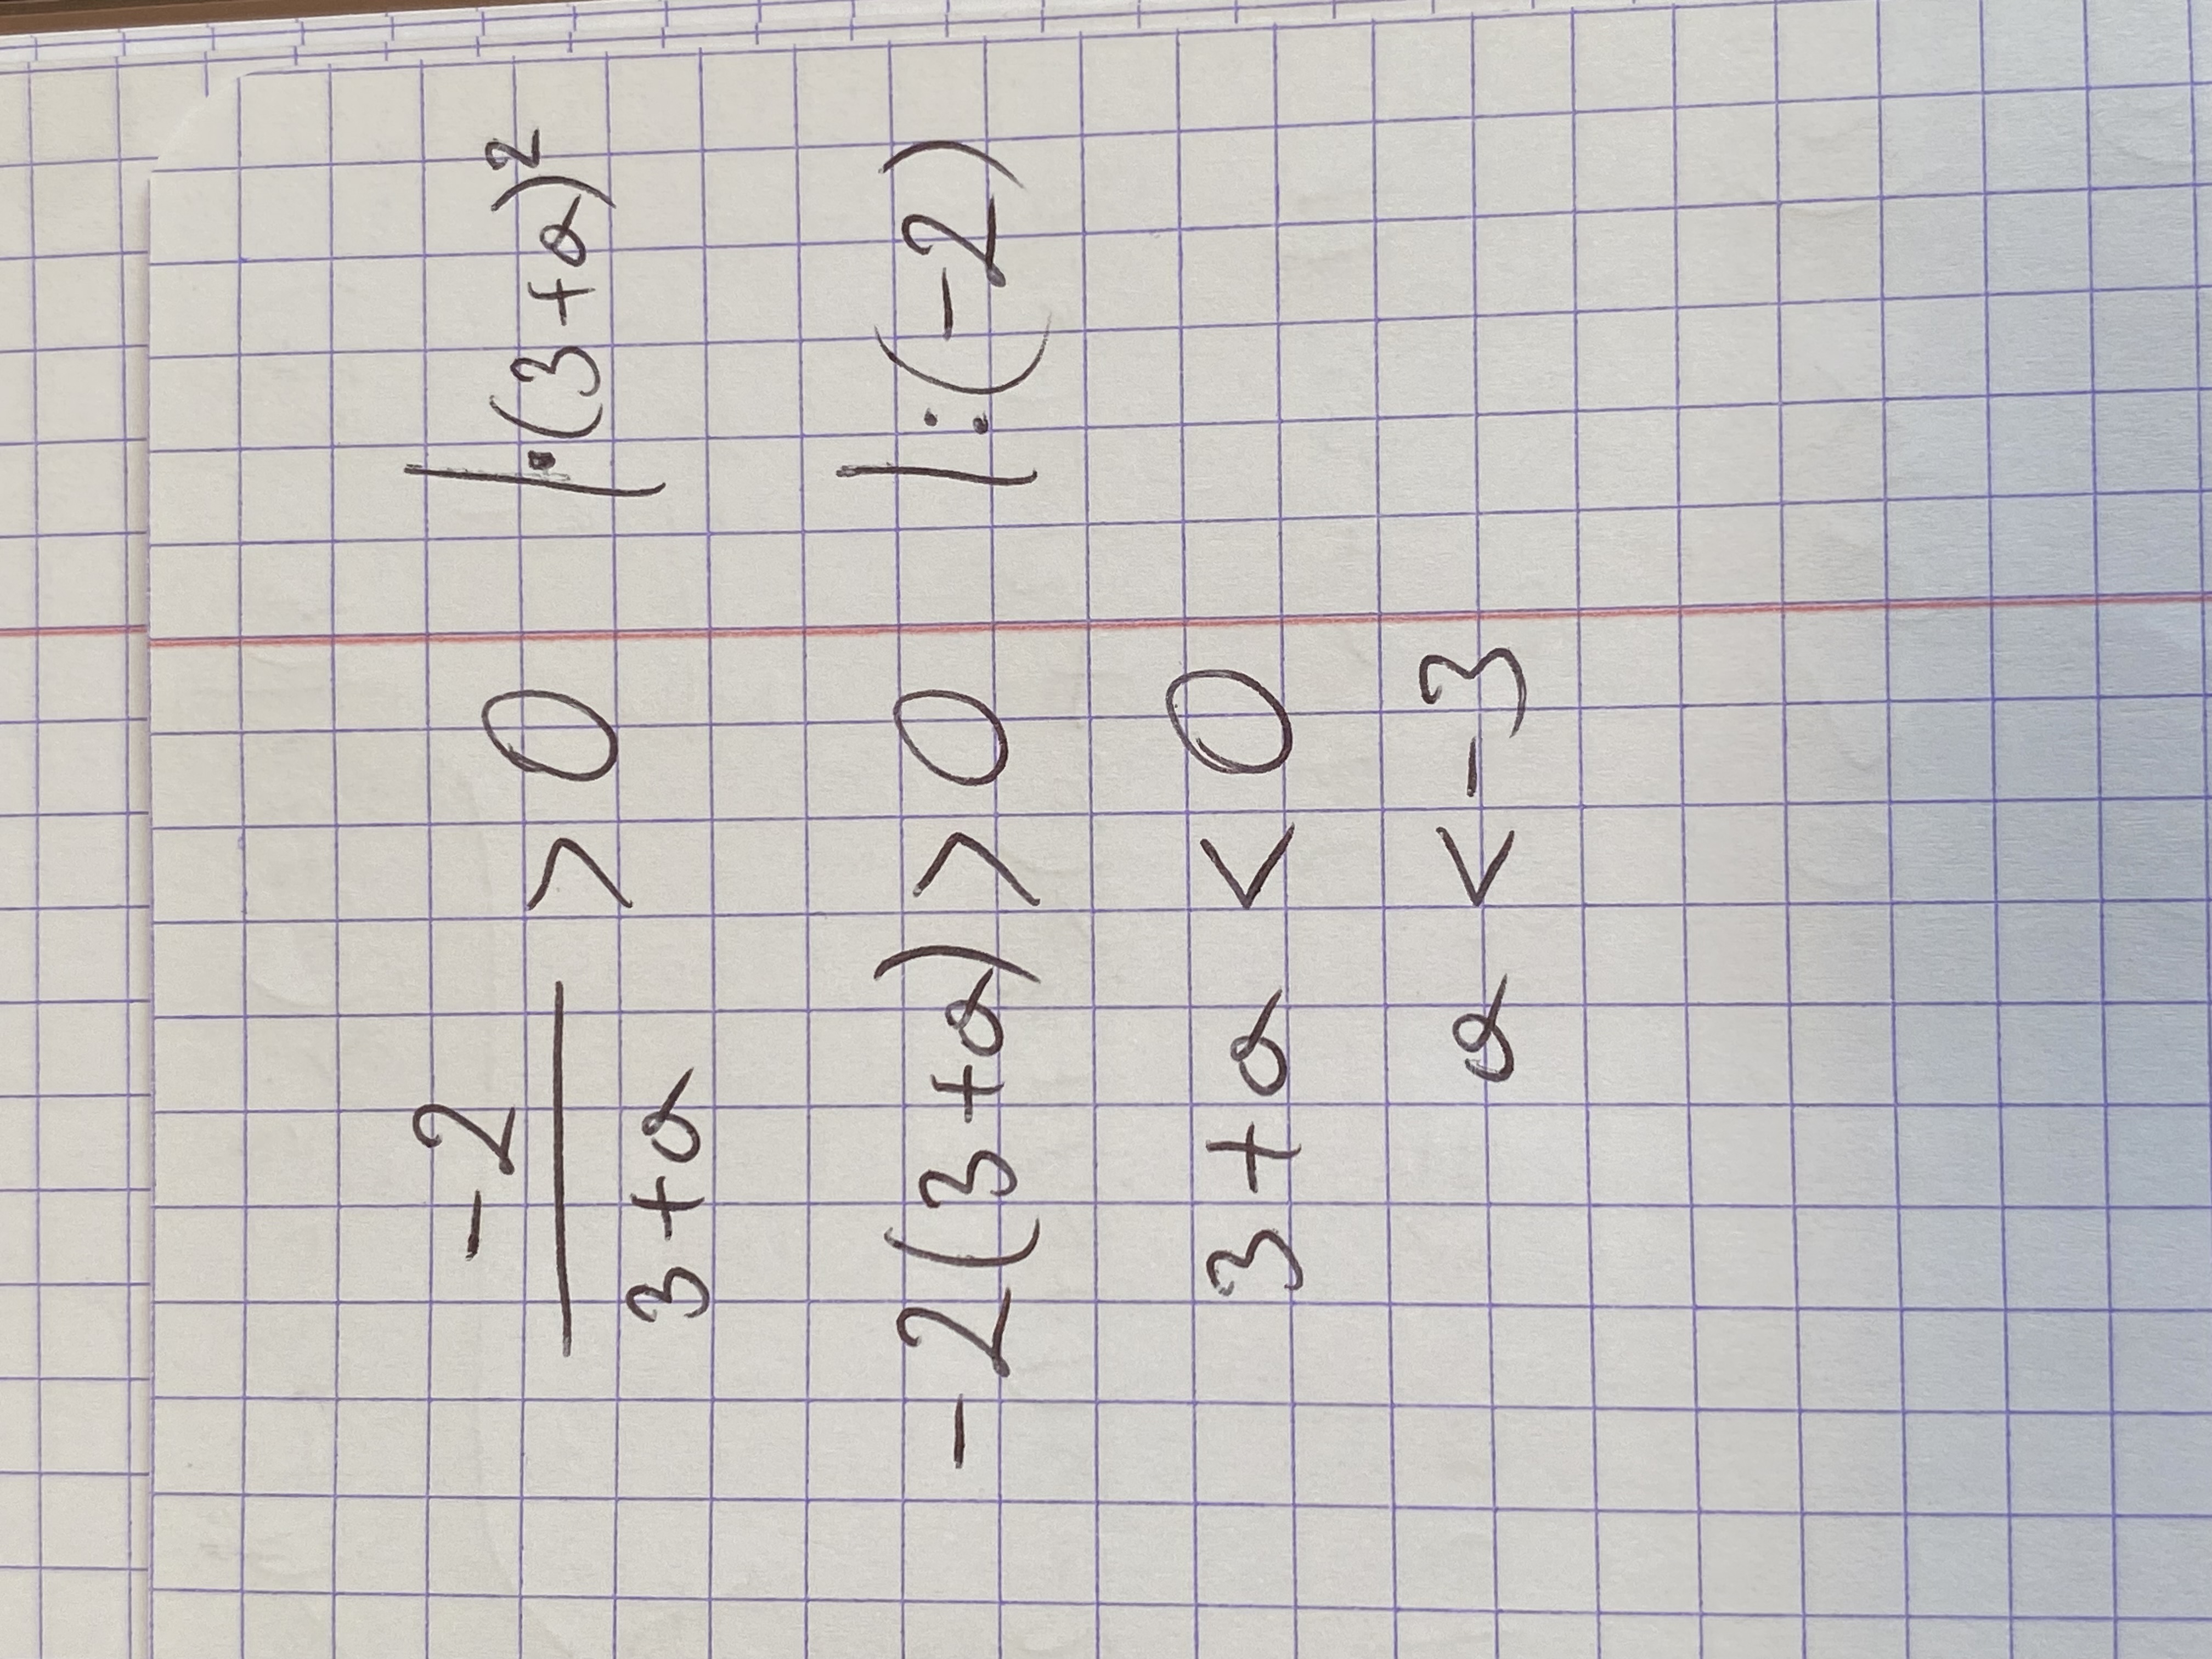 -2/(3+a) > 0 | ·(3+a)²
-2(3+a) > 0 | :(-2)
3+a < 0
a < -3